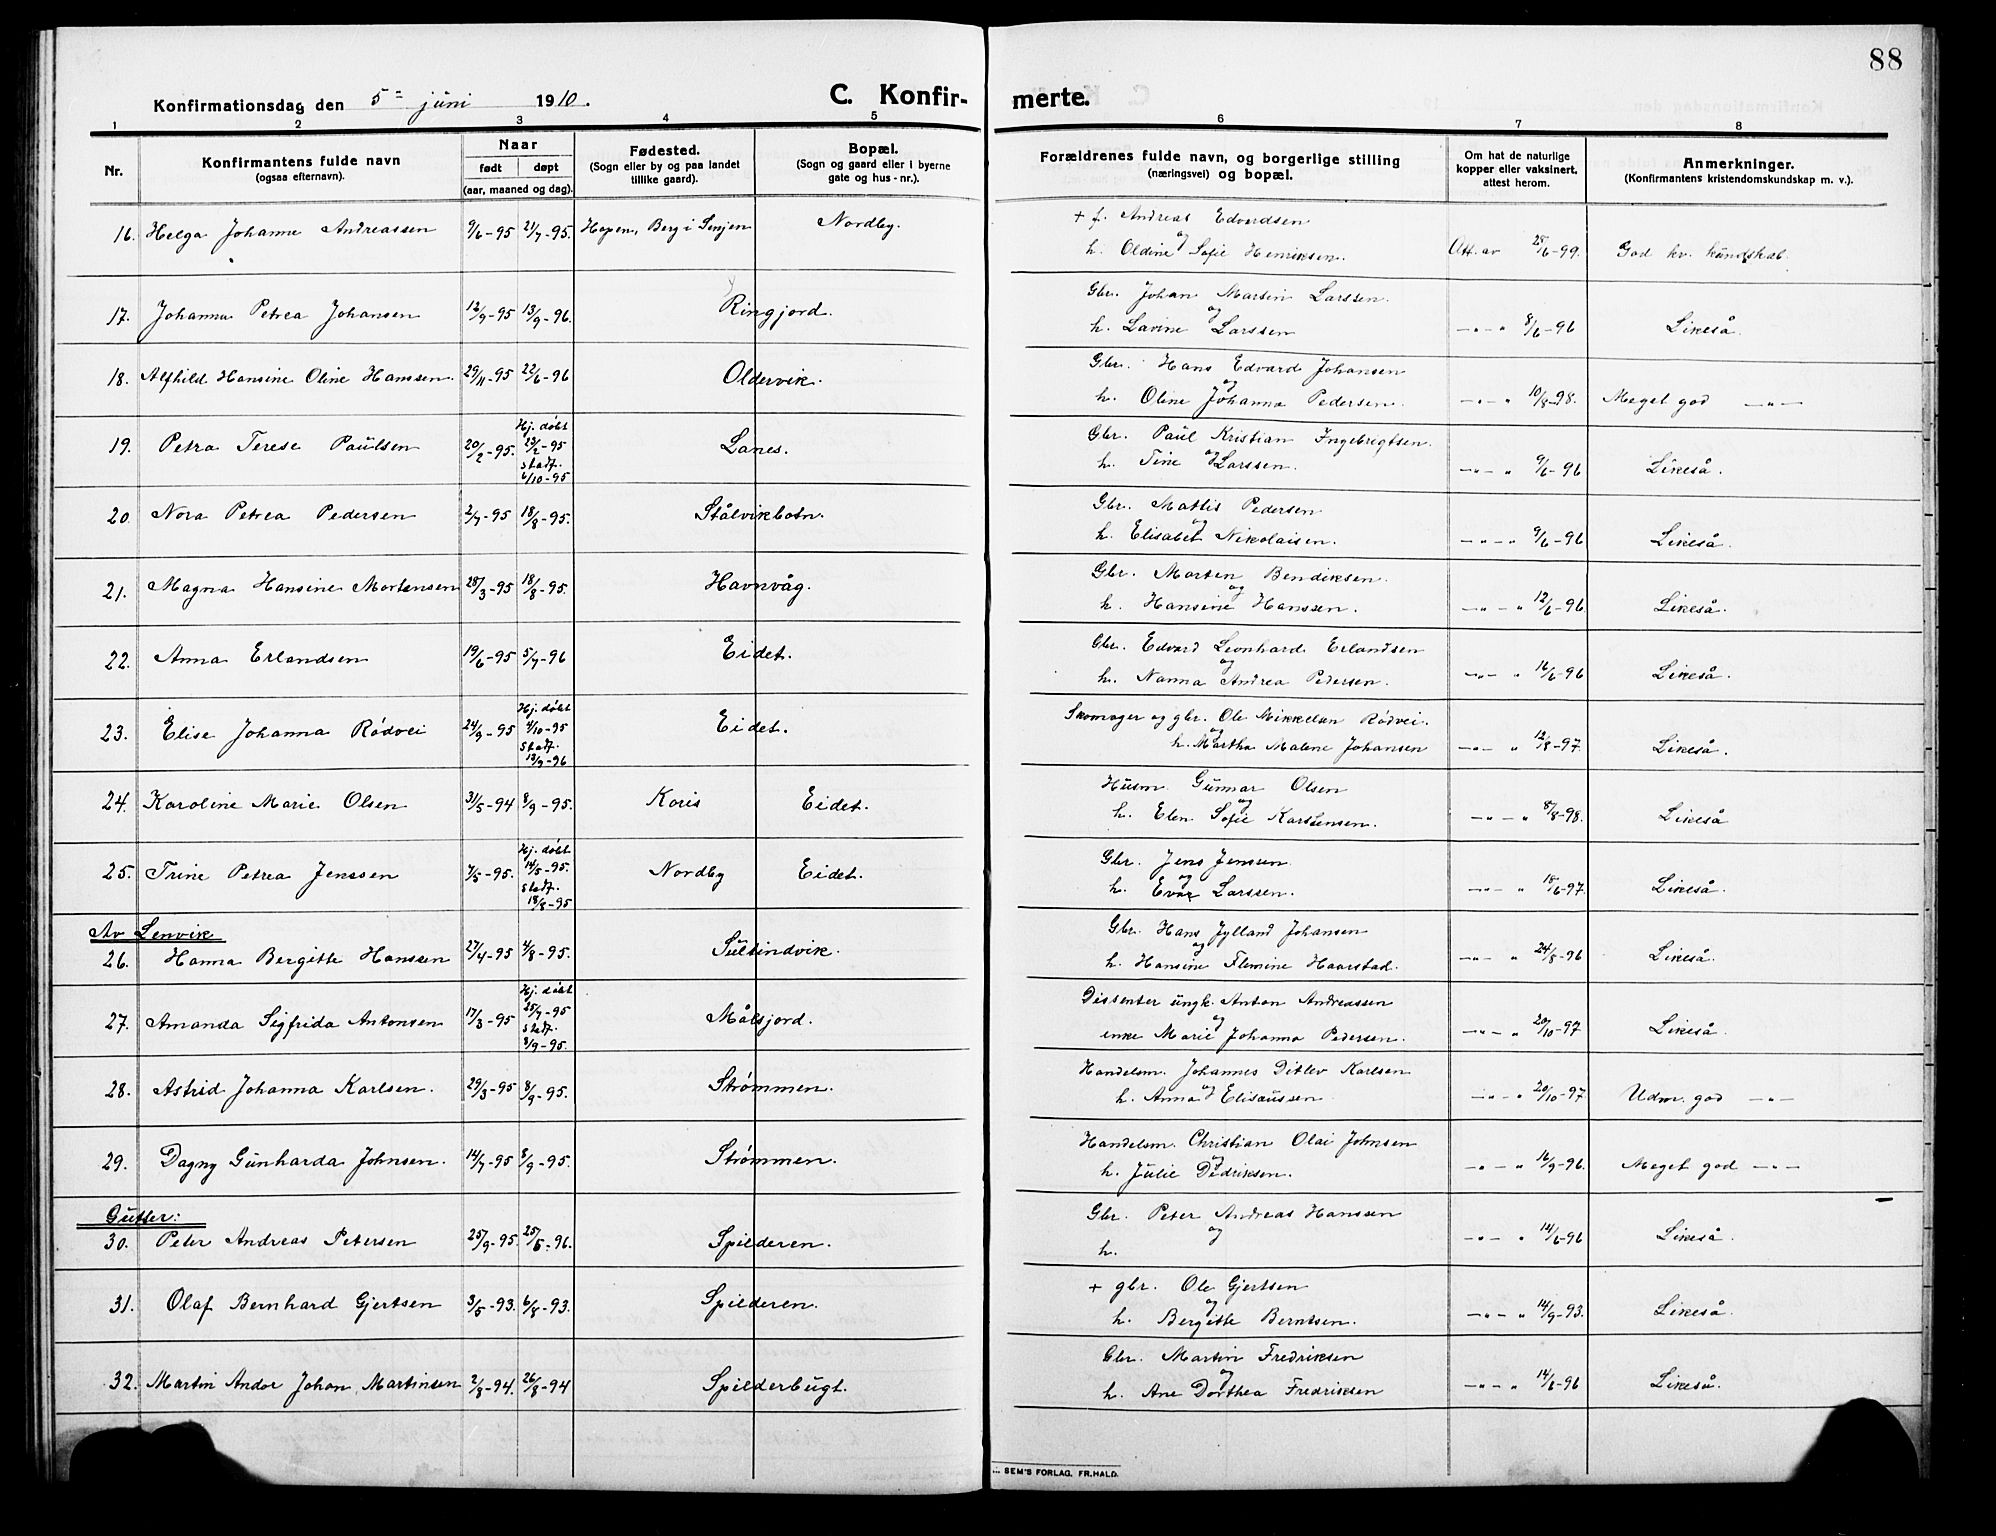 88
Konfirmationsdag den 5= juni 1910.
C. Konfir- merte.
1 2 3 4 5 6 7 8
Nr.
Konfirmantens fulde navn
(ogsaa efternavn).
Naar
født døpt
(aar, maaned og dag).
Fødested.
(Sogn eller by og paa landet
tillike gaard).
Bopæl.
(Sogn og gaard eller i byerne
gate og hus-nr.).
Forældrenes fulde navn, og borgerlige stilling
(næringsvei) og bopæl.
Om hat de naturlige
kopper eller vaksinert,
attest herom.
Anmerkninger.
(Konfirmantens kristendomskundskap m. v.).
16. Helga Johanne Andreassen 9/6-95 21/7-95. Hopen, Berg i Senjen Nordby. + f. Andreas Edvardsen
og
h. Oldine Sofie Henriksen. Att. av 25/6-99. God kr. kundskab.
17. Johanna Petrea Johansen 12/9-95 13/9-96. Ringjord. Gbr. Johan Martin Larssen.
og
h. Lavine Larssen -"-" 8/6-96 Likeså.
18. Alfhild Hansine Oline Hanssen. 29/11-95 22/6-96 Oldervik. Gbr. Hans Edvard Johansen
og
h. Oline Johanna Pedersen. -"-" 10/8-98. Meget god -"-
19. Petra Terese Paulsen 20/2-95. Hj. døbt
23/2-95
stadf.
6/10-95 Lanes. Gbr. Paul Kristian Ingebrigtsen.
og
h. Tine Larssen. -"-" 9/6-96 Likeså.
20. Nora Petrea Pedersen 2/7-95 18/8-95. Stålvikbotn. Gbr. Mattis Pedersen
og
h. Elisabet Nikolaisen. -"-" 9/6-96 Likeså.
21. Magna Hansine Mortensen 28/3-95 18/8-95. Havnvåg. Gbr. Morten Bendiksen.
og
h. Hansine Hanssen. -"-" 12/6-96 Likeså.
22. Anna Erlandsen 19/6-95 5/7-96 Eidet. Gbr. Edvard Leonhard Erlandsen
og
h. Nanna Andrea Pedersen. -"-" 16/6-96 Likeså.
23. Elise Johanna Rødvei 24/9-95 Hj. døbt
4/10-95
stadf.
13/9-96 Eidet. Skomager og gbr. Ole Mikkelsen Rødvei.
og
h. Martha Malene Johansen -"-" 12/8-97. Likeså.
24. Karoline Marie Olsen 31/5-94 8/9-95. Koris Eidet. Husm. Gunnar Olsen
og
h. Elen Sofie Karstensen. -"-" 8/8-98. Likeså
25. Trine Petrea Jenssen 7/5-95. Hj. døbt
14/5-95.
stadf.
18/8-95 Nordby Eidet. Gbr. Jens Jenssen.
og
h. Evar Larssen. -"-" 18/6-97. Likeså.
Av Lenvik
26. Hanna Bergitte Hanssen 27/4-95 4/8-95. Sultindvik. Gbr. Hans Jylland Johansen
og
h. Hansine Flemine Haarstad. -"-" 24/8-96 Likeså.
27. Amanda Sigfrida Antonsen 17/3-95 Hj. døbt
25/7-95
stadf.
8/9-95. Målsjord. Dissenter ungk. Anton Andreassen
og
enke Marie Johanna Pedersen. -"-" 20/10-97 Likeså.
28. Astrid Johanna Karlsen. 29/3-95 8/9-95. Strømmen. Handelsm. Johannes Ditlev Karlsen
og
h. Anna Elisæussen -"-" 20/10-97 Udm. god -"-
29. Dagny Gunharda Johnsen. 14/7-95 8/9-95. Strømmen. Handelsm. Christian Olai Johnsen
og
h. Julie Didriksen. -"-" 16/9-96. Meget god -"-
Gutter:
30. Peter Andreas Petersen 25/9-95. 25/5-96. Spilderen. Gbr. Peter Andreas Hanssen
og
h. -"-" 14/6-96 Likeså.
31. Olaf Bernhard Gjertsen 3/5-93. 6/8-93. Spilderen. + gbr. Ole Gjertsen
og
h. Bergitte Berntsen. -"-" 14/9-93. Likeså
32. Martin Andor Johan Martinsen 2/8-94. 26/8-94 Spilderbugt. Gbr. Martin Fredriksen
og
h. Ane Dorthea Fredriksen -"-" 14/6-96 Likeså.
SEM'S FORLAG. FR. HALD.